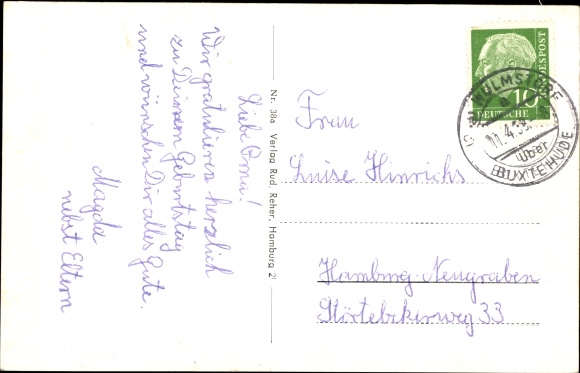 Liebe Omi!
Wir gratulieren herzlich
zu Deinem Geburtstag
und wünschen Dir alles Gute.
Magda
nebst Eltern
Nr. 38a Verlag Rud. Reher, Hamburg 2
Frau
Luise Hinrichs
Hamburg-Neugraben
Störtebekerweg 33
DEUTSCHE BUNDESPOST
10
11.4.59
über
BUXTEHUDE